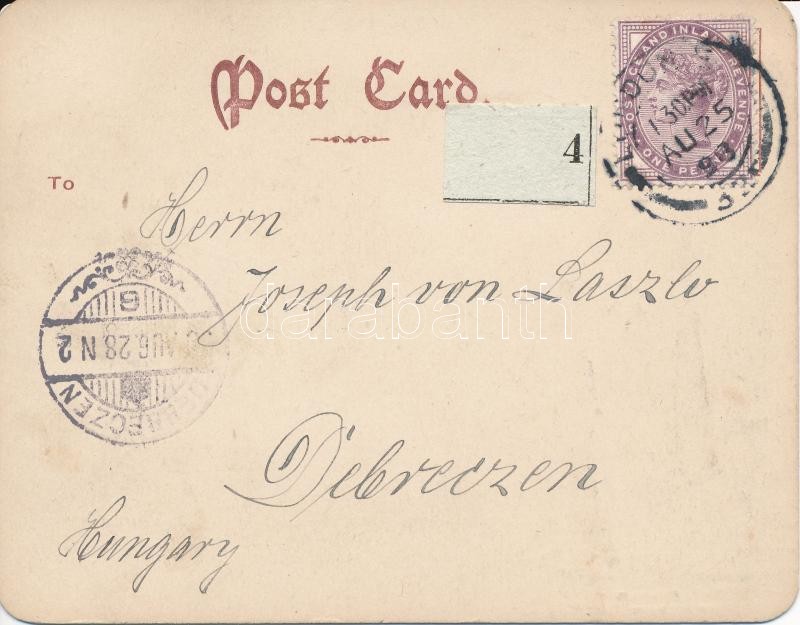 Post Card.
To
4
POSTAGE AND INLAND REVENUE
ONE PENNY
LONDON
1 30PM
AU 25
98
32
Herrn
Joseph von Laszlo
Debreczen
Hungary
DEBRECZEN
AUG. 28 N 2
darabanth